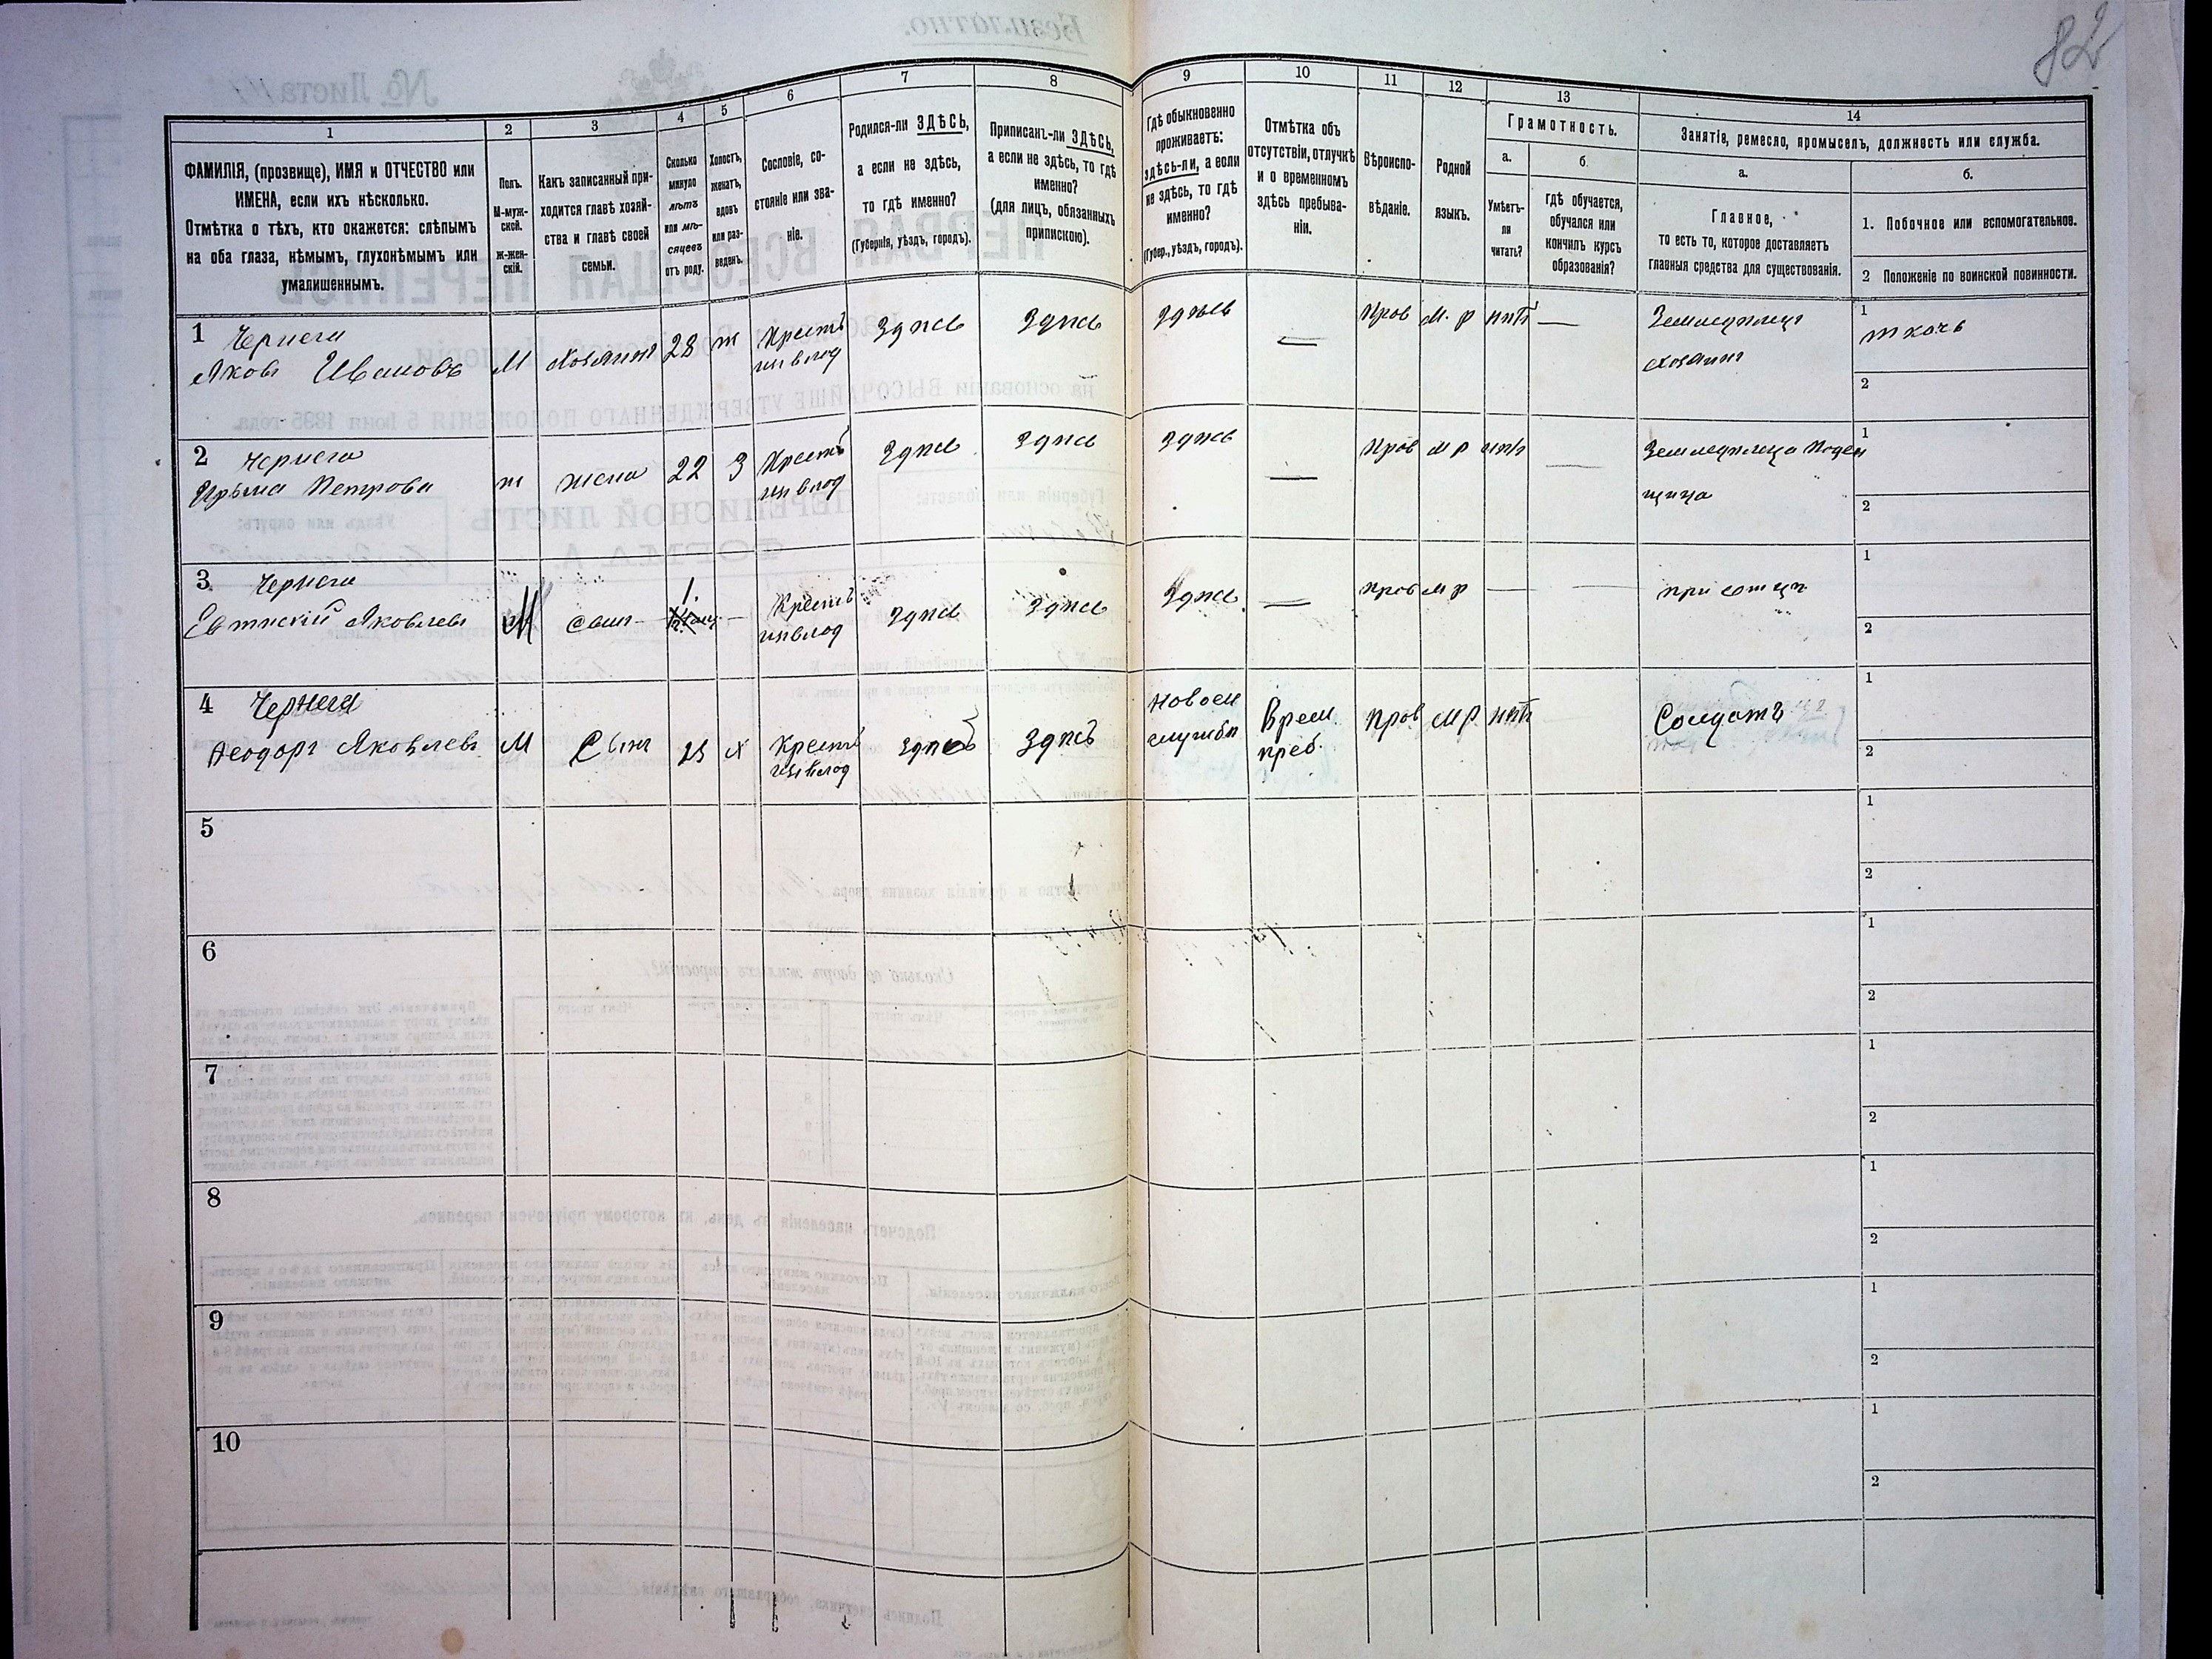 82
1
2
3
4
5
6
7
8
9
10
11
12
13
14
ФАМИЛІЯ, (прозвище), ИМЯ и ОТЧЕСТВО или
ИМЕНА, если ихъ нѣсколько.
Отмѣтка о тѣхъ, кто окажется: слѣпымъ
на оба глаза, нѣмымъ, глухонѣмымъ или
умалишеннымъ.
Полъ.
М-муж-
ской.
ж-жен-
скій.
Какъ записанный при-
ходится главѣ хозяй-
ства и главѣ своей
семьи.
Сколько
минуло
лѣтъ
или мѣ-
сяцевъ
отъ роду.
Холостъ,
женатъ,
вдовъ
или раз-
веденъ.
Сословіе, со-
стояніе или зва-
ніе.
Родился-ли ЗДѢСЬ,
а если не здѣсь,
то гдѣ именно?
(Губернія, уѣздъ, городъ).
Приписанъ-ли ЗДѢСЬ,
а если не здѣсь, то гдѣ
именно?
(для лицъ, обязанныхъ
припискою).
Гдѣ обыкновенно
проживаетъ:
здѣсь-ли, а если
не здѣсь, то гдѣ
именно?
(Губер., уѣздъ, городъ).
Отмѣтка объ
отсутствіи, отлучкѣ
и о временномъ
здѣсь пребыва-
ніи.
Вѣроиспо-
вѣданіе.
Родной
языкъ.
Грамотность.
а.
Умѣетъ-
ли
читать?
б.
Гдѣ обучается,
обучался или
кончилъ курсъ
образованія?
Занятіе, ремесло, промыселъ, должность или служба.
а.
Главное,
то есть то, которое доставляетъ
главныя средства для существованія.
б.
1. Побочное или вспомогательное.
2 Положеніе по воинской повинности.
1 Чернега
Яковъ Ивановъ
М
Хозяинъ
28
ж
Крест
Здѣсь
Здѣсь
Здѣсь
—
Прав
М. р
нѣтъ
—
Земледѣлецъ
хозяинъ
1
ткачь
2
2 Чернега
Петрова
ж
жена
22
З
Крест
Здѣсь
Здѣсь
Здѣсь
—
Прав
М р
нѣтъ
—
Земледѣлица Поден
щица
1
2
3 Чернега
Яковлевъ
М
сынъ
1.
—
Крест
Здѣсь
Здѣсь
Здѣсь
—
Прав
М р
—
—
при отцѣ
1
2
4 Чернега
Ѳеодоръ Яковлевъ
М
Сынъ
х
Крест
Здѣсь
Здѣсь
службѣ
Врем.
преб.
Прав
М р
нѣтъ
Солдатъ
1
2
5
1
2
6
1
2
7
1
2
8
1
2
9
1
2
10
1
2